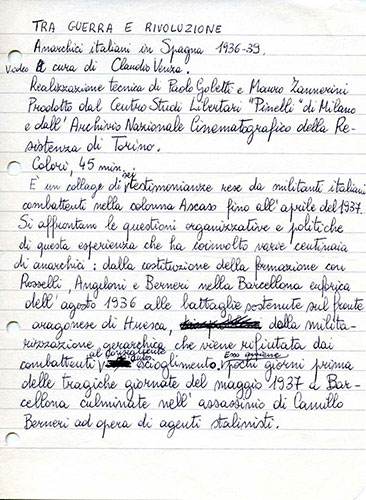 TRA GUERRA E RIVOLUZIONE
Anarchici italiani in Spagna 1936-39.
Video A cura di Claudio Venza.
Realizzazione tecnica di Paolo Gobetti e Mauro Zannerini
Prodotto dal Centro Studi Libertari "Pinelli" di Milano
e dall'Archivio Nazionale Cinematografico della Re-
sistenza di Torino.
Colori, 45 min.
È un collage di sei testimonianze rese da militanti italiani
combattenti nella colonna Ascaso fino all'aprile del 1937.
Si affrontano le questioni organizzative e politiche
di questa esperienza che ha coinvolto varie centinaia
di anarchici: dalla costituzione della formazione con
Rosselli, Angeloni e Berneri nella Barcellona euforica
dell'agosto 1936 alle battaglie sostenute sul fronte
aragonese di Huesca, dalla milita-
rizzazione gerarchica che viene rifiutata dai
combattenti al conseguente scioglimento. Esso avviene pochi giorni prima
delle tragiche giornate del maggio 1937 a Bar-
cellona culminate nell'assassinio di Camillo
Berneri ad opera di agenti stalinisti.